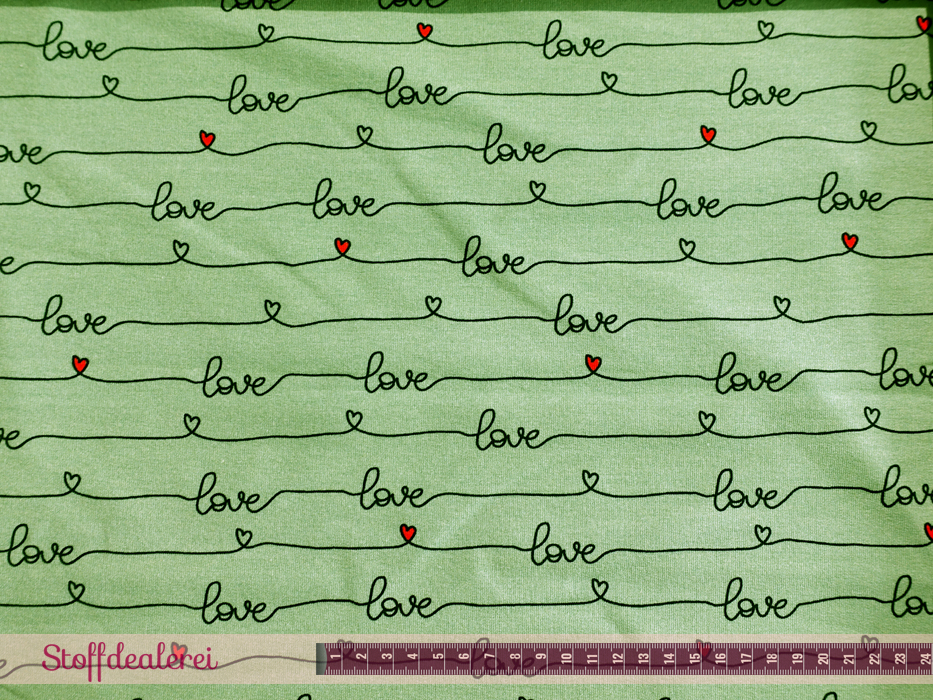 love love
love love
love love love
love love
love
love love love love
love
love love
love love love
love
love love love love
love
love love love
ove love
love love love
Stoffdealerei 1 2 3 4 5 6 7 8 9 10 11 12 13 14 15 16 17 18 19 20 21 22 23 24